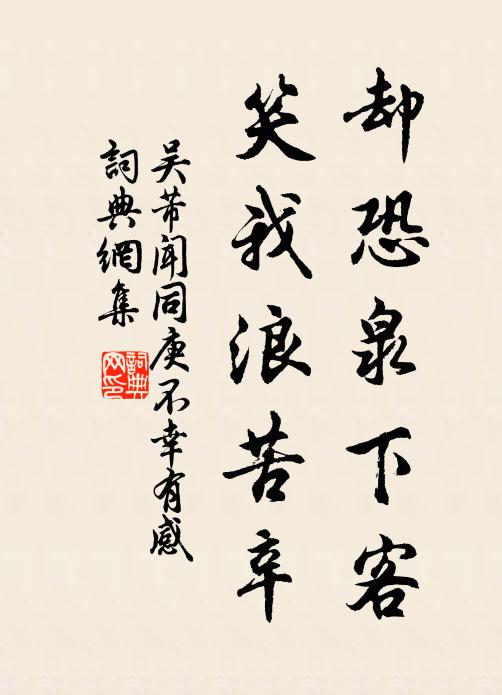 却恐泉下客
笑我浪苦辛
吴芾闻同庚不幸有感
詞典網集
詞典网印